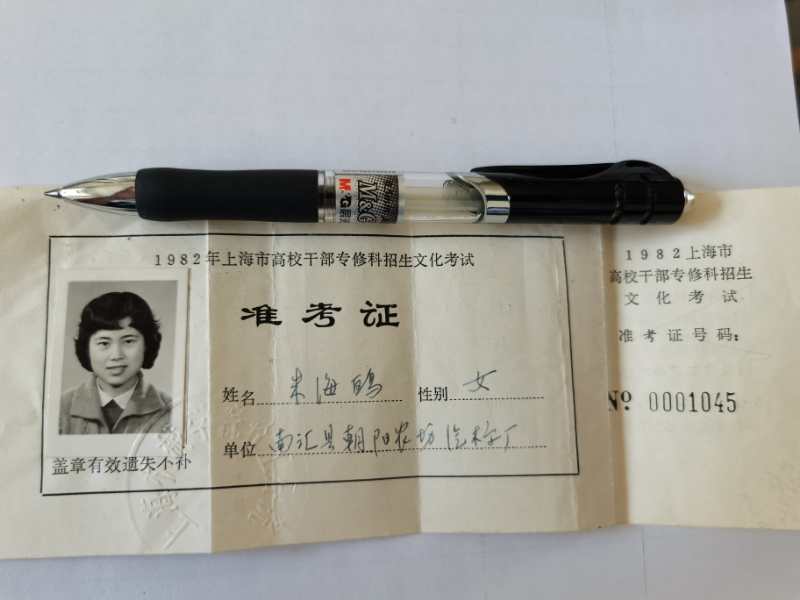 M&G
M&G
1982年上海市高校干部专修科招生文化考试
准考证
姓名 朱海鸥 性别 女
单位 南汇县朝阳农场
盖章有效遗失不补
1982上海市
高校干部专修科招生
文化考试
准考证号码:
№ 0001045